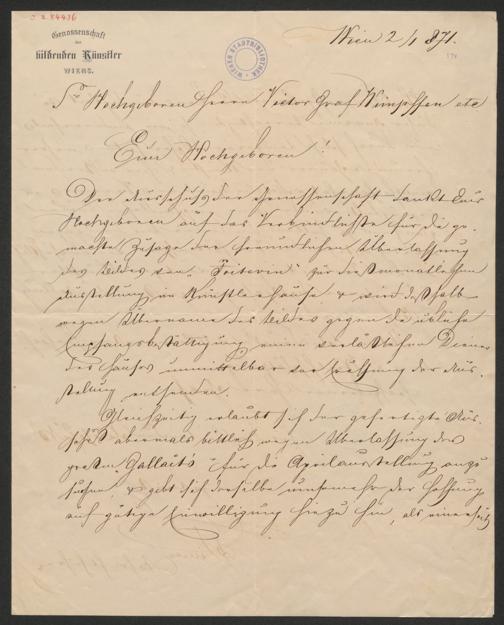 J. N. 84436
Genossenschaft
der
bildenden Künstler
WIENS.
Wien 2/4 871.
WIENER STADTBIBLIOTHEK
Sr Hochgeboren Herrn Victor Graf Wimpffen etc
Euer Hochgeboren!
Der Ausschuß der Genossenschaft dankt Euer
Hochgeboren auf das Verbindlichste für die ge-
machte Zusage der freundlichen Überlassung
des Bildes von zur dießmonatlichen
Ausstellung im Künstlerhause & wird deßhalb
wegen Übername des Bildes gegen die übliche
Empfangsbestättigung einen verläßlichen Diener
des Hauses unmittelbar vor Eröffnung der Aus-
stellung entsenden.
Gleichzeitig erlaubt sich der gefertigte Aus-
schuß abermals bittlich wegen Überlassung des
großen "Gallait's" für die Aprilausstellung anzu
suchen, & gibt sich derselbe umsomehr der Hoffnung
auf gütige Einwilligung hiezu hin, als einerseits